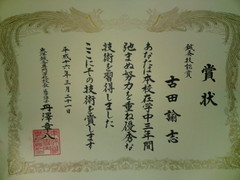 賞状
鍼灸技能賞
古田諭志
あなたは本校在学中三年間
弛まぬ努力を重ね優秀な
技術を習得しました
ここにその技術を賞します
平成十六年三月二十一日
丹澤章八